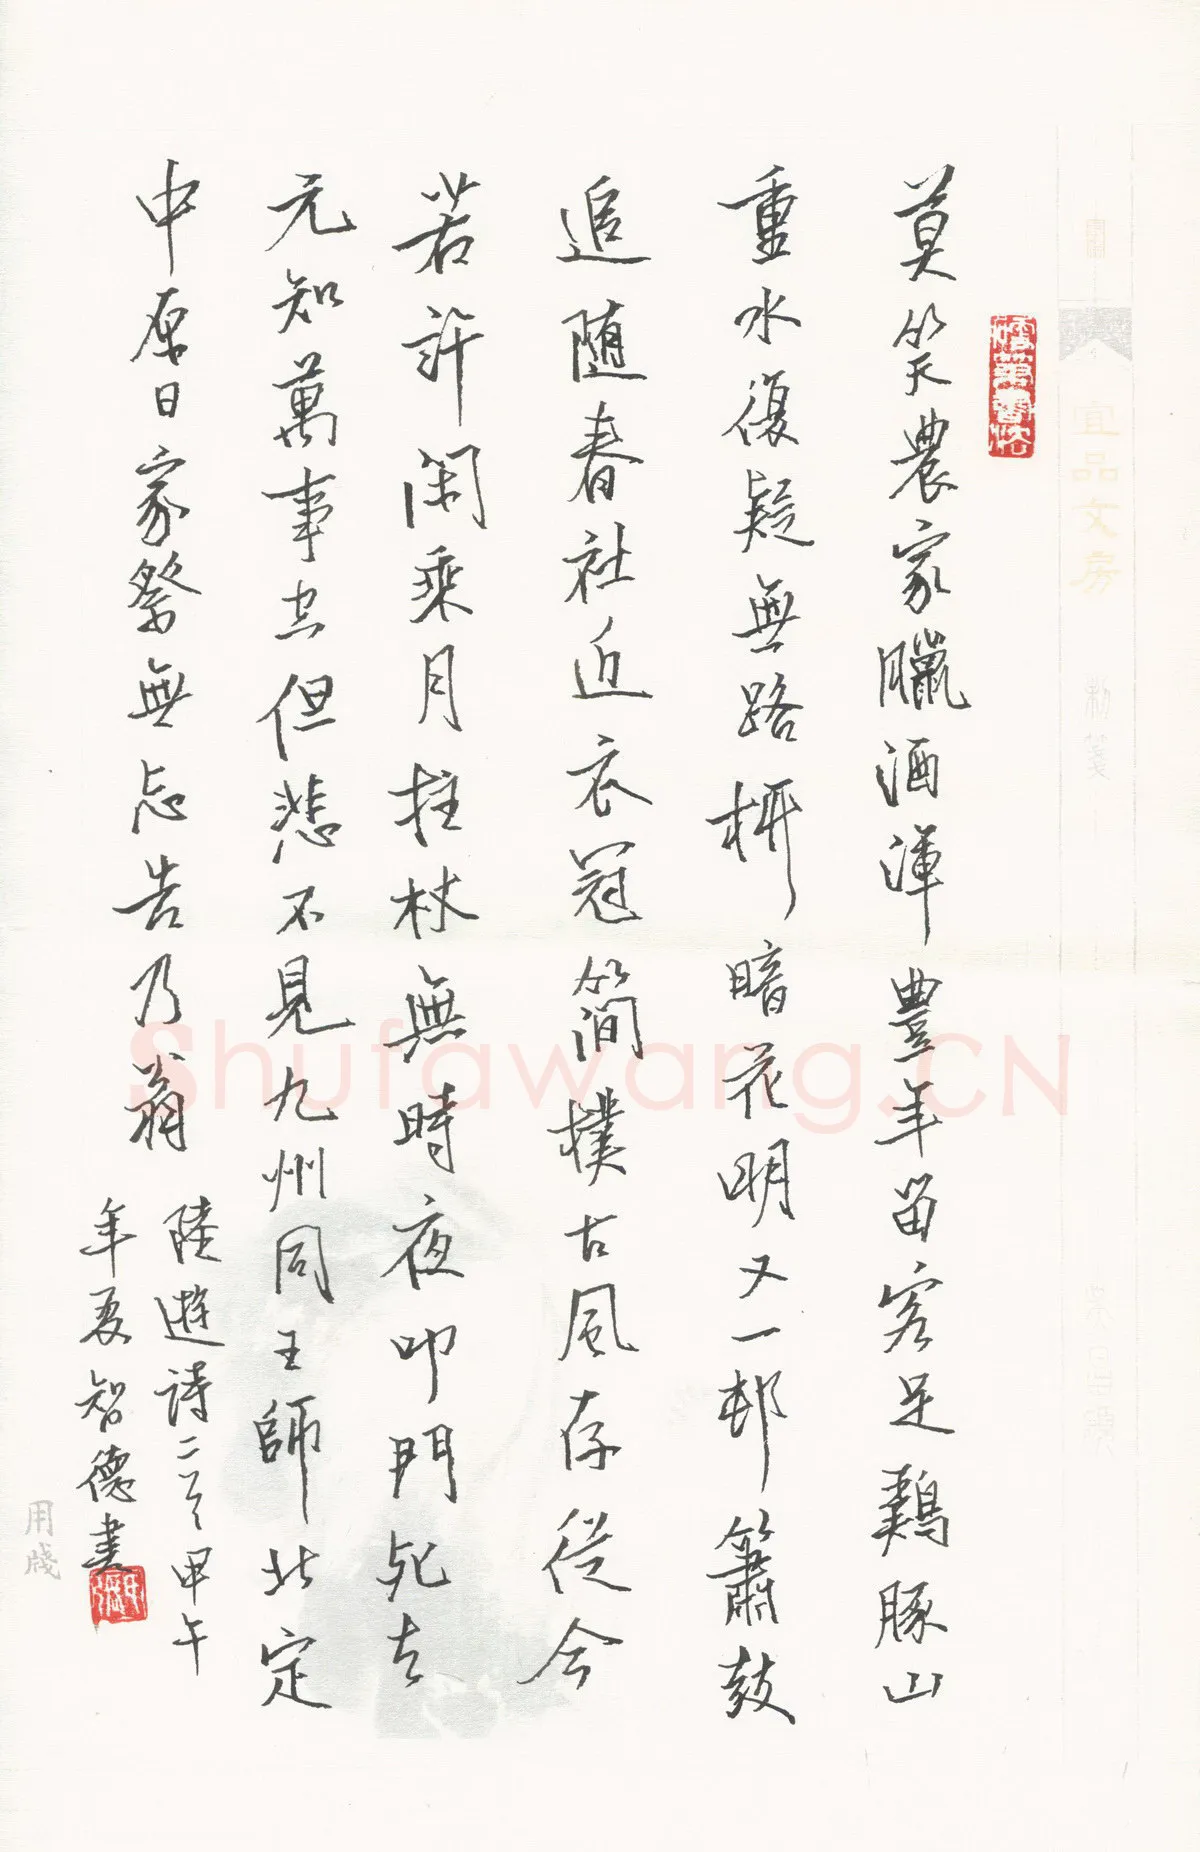 莫笑農家臘酒渾豐年留客足鷄豚山
重水復疑無路柳暗花明又一邨簫鼓
追隨春社近衣冠簡樸古風存從今
若許閑乘月拄杖無時夜叩門死去
元知萬事空但悲不見九州同王師北定
中原日家祭無忘告乃翁
陸遊詩二首甲午
年夏智德書
宜品文房
用牋
Shufawang.CN